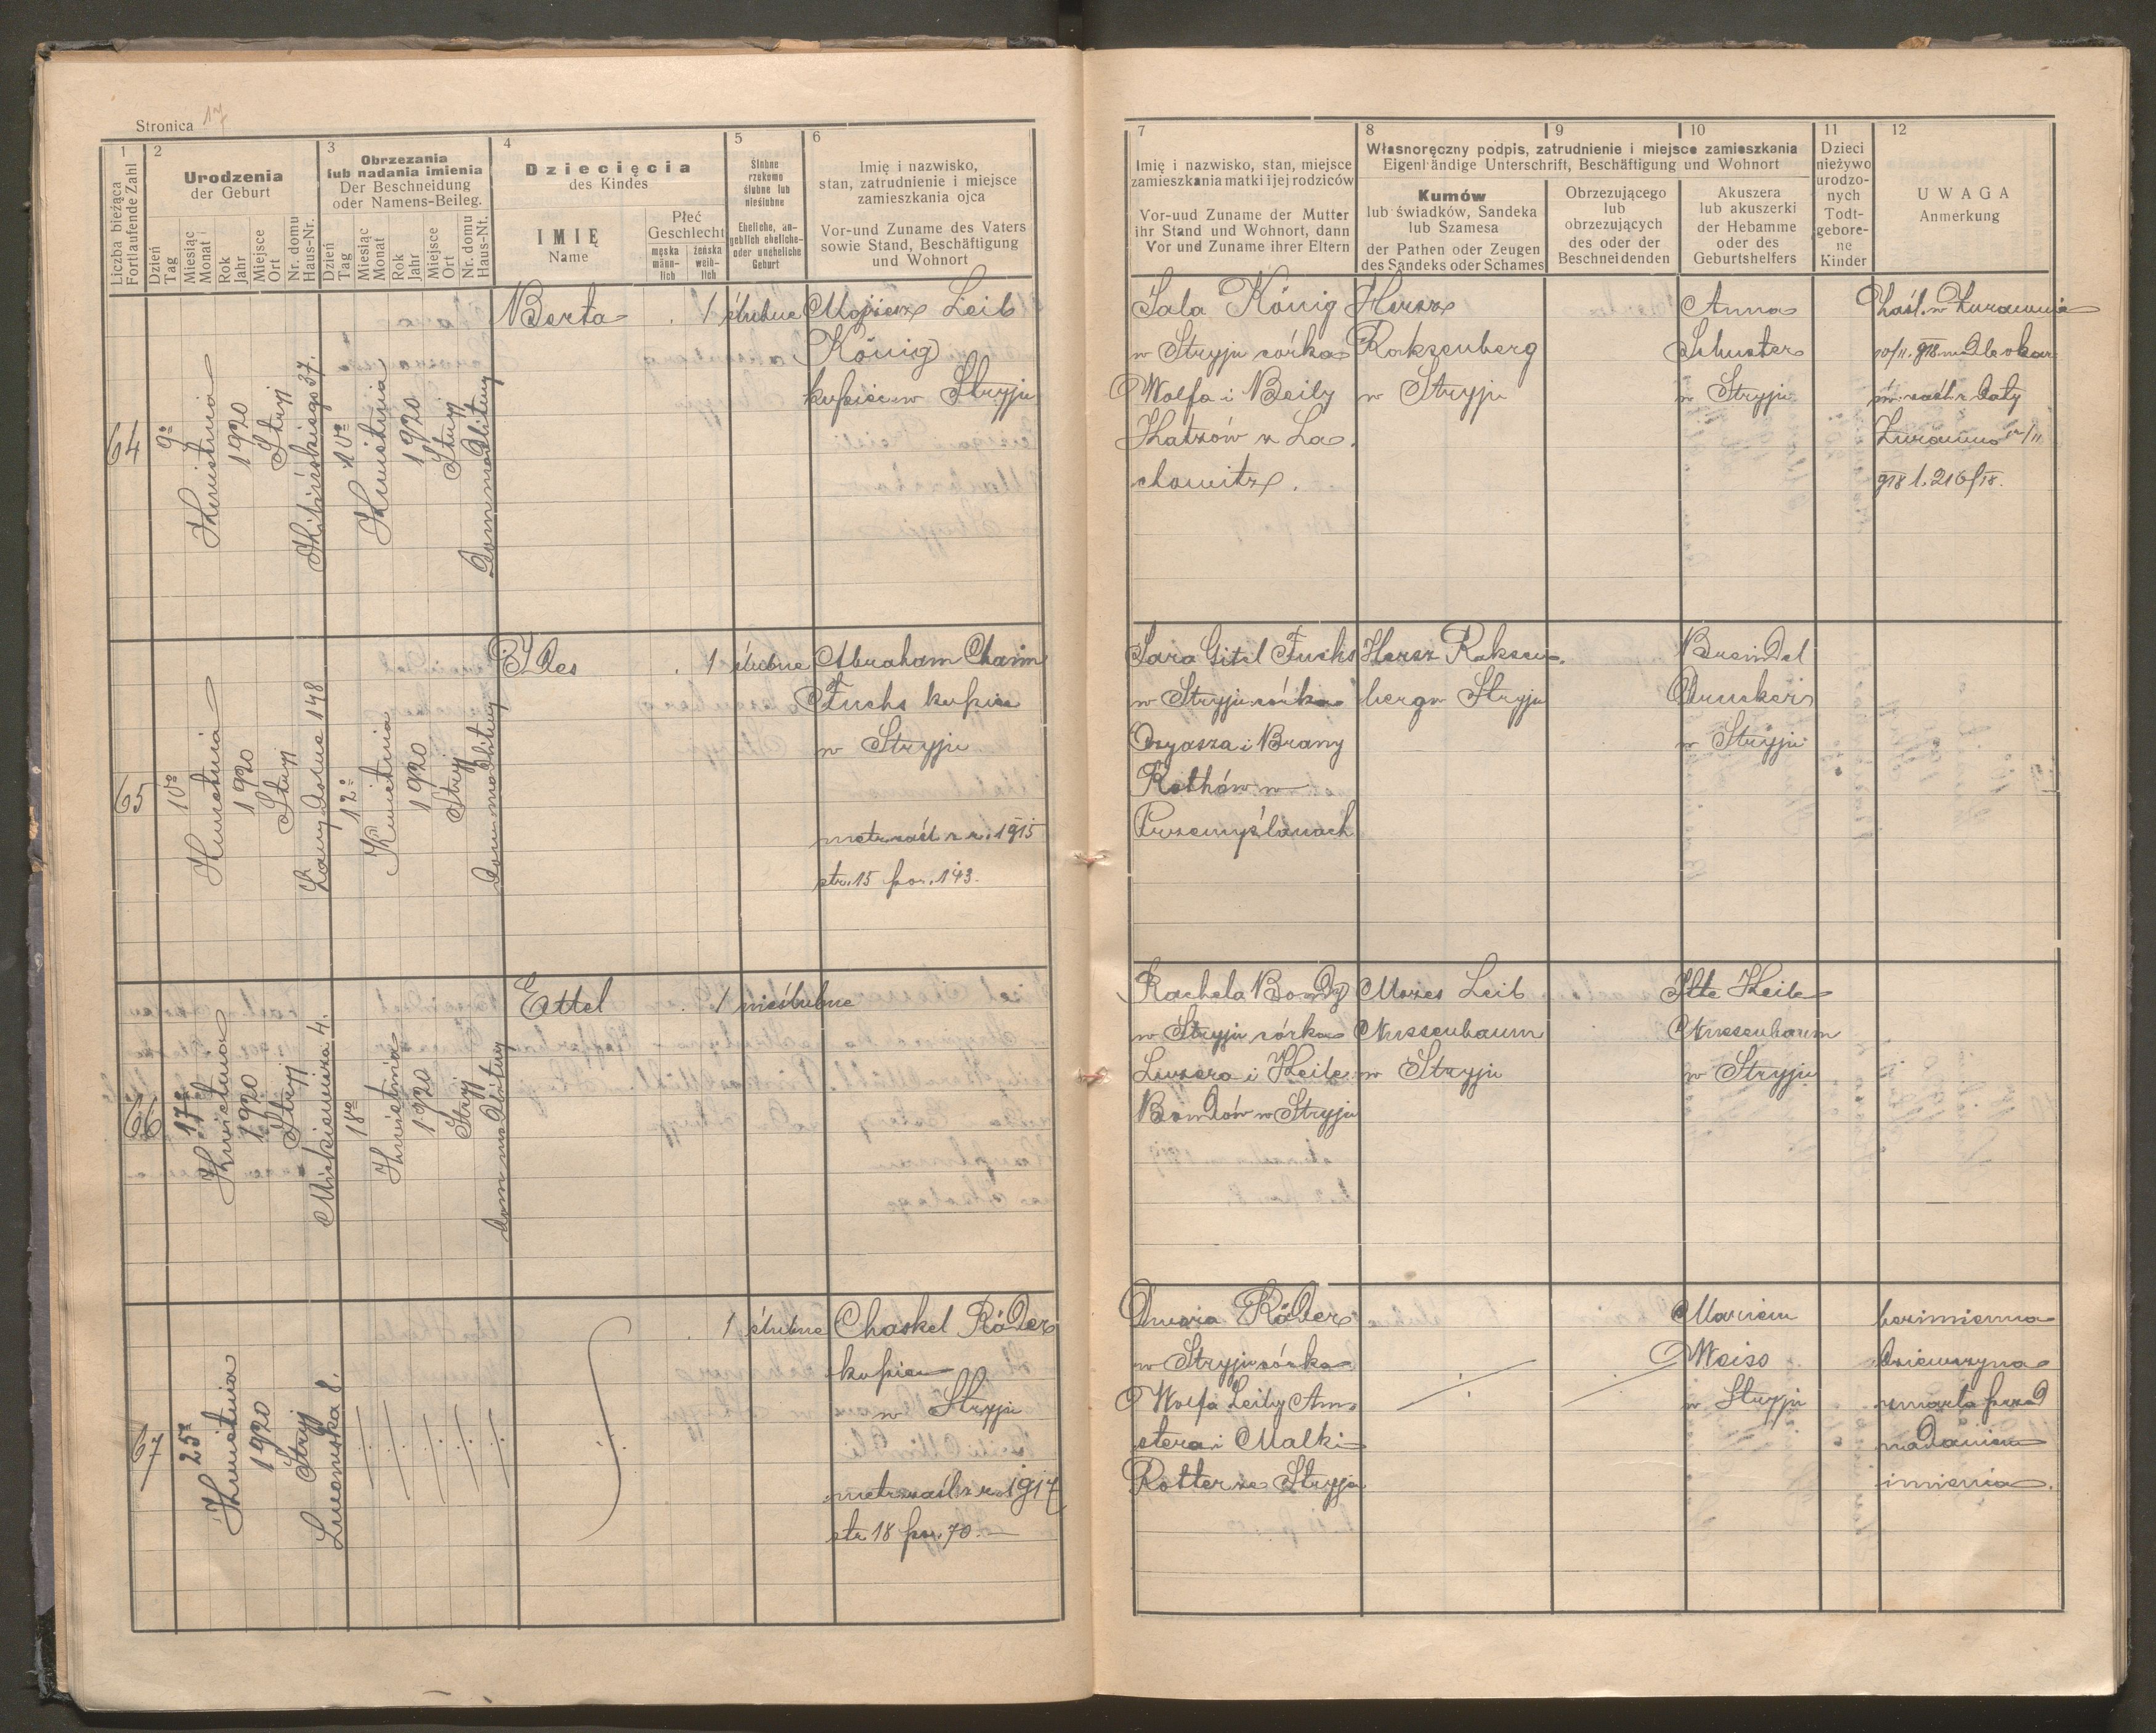 Stronica 17
1
2
3
4
5
6
Liczba bieżąca
Fortlaufende Zahl
Urodzenia
der Geburt
Dzień
Tag
Miesiąc
Monat
Rok
Jahr
Miejsce
Ort
Nr. domu
Haus-Nr.
Obrzezania
lub nadania imienia
Der Beschneidung
oder Namens-Beileg.
Dzień
Tag
Miesiąc
Monat
Rok
Jahr
Miejsce
Ort
Nr. domu
Haus-Nt.
Dziecięcia
des Kindes
IMIĘ
Name
Płeć
Geschlecht
męska
männ-
lich
żeńska
weib-
lich
Ślubne
rzekomo
ślubne lub
nieślubne
Eheliche, an-
geblich eheliche-
oder uneheliche
Geburt
Imię i nazwisko,
stan, zatrudnienie i miejsce
zamieszkania ojca
Vor-und Zuname des Vaters
sowie Stand, Beschäftigung
und Wohnort
64
9º
Kwietnia
1920
Stryj
Kilińskiego 37.
10º
Kwietnia
1920
Stryj
Dom modlitwy
Berta
1
ślubne
Mojżesz Leib
König
kupiec w Stryju
65
10º
Kwietnia
1920
Stryj
Łany dolne 148
12º
Kwietnia
1920
Stryj
Dom modlitwy
Ides
1
ślubne
Abraham Chaim
Fuchs kupiec
w Stryju
metr. zaśl. z r. 1915
str. 15 poz. 143.
66
17º
Kwietnia
1920
Stryj
Mickiewicza 4.
18º
Kwietnia
1920
Stryj
dom modlitwy
Ettel
1
nieślubne
67
25º
Kwietnia
1920
Stryj
Lwowska 8.
1
ślubne
Chaskel Räder
kupiec
w Stryju
metr. zaśl. z r. 1917
str. 18 poz. 70.
7
8
9
10
11
12
Imię i nazwisko, stan, miejsce
zamieszkania matki i jej rodziców
Vor-uud Zuname der Mutter
ihr Stand und Wohnort, dann
Vor und Zuname ihrer Eltern
Własnoręczny podpis, zatrudnienie i miejsce zamieszkania
Eigenhändige Unterschrift, Beschäftigung und Wohnort
Kumów
lub świadków, Sandeka
lub Szamesa
der Pathen oder Zeugen
des Sandeks oder Schames
Obrzezującego
lub
obrzezujących
des oder der
Beschneidenden
Akuszera
lub akuszerki
der Hebamme
oder des
Geburtshelfers
Dzieci
nieżywo
urodzo-
nych
Todt-
gebore-
ne
Kinder
UWAGA
Anmerkung
Sala König
w Stryju córka
Wolfa i Beily
Katzów z La
chowitz.
Hersz
Rokzenberg
w Stryju
Anna
Schuster
w Stryju
Zaśl. w Żurawnie
10/11. 918
św. zaśl. z daty
Żurawno
918 l. 216/18.
Sara Gitel Fuchs
w Stryju córka
Ozyasza i Brany
Rothów w
Przemyślanach
Hersz Roksen-
berg w Stryju
Breindel
Drucker
w Stryju
Rachela Bomdy
w Stryju córka
Luzera i Keile
Bomdów w Stryju
Mozes Leib
Nussenbaum
w Stryju
Itte Keile
Nussenbaum
w Stryju
Dwora Räder
w Stryju córka
Wolfa Leiby Am-
stera i Malki
Rotter ze Stryja
Mariem
Weiss
w Stryju
bezimienna
dziewczyna
zmarła przed
nadaniem
imienia.